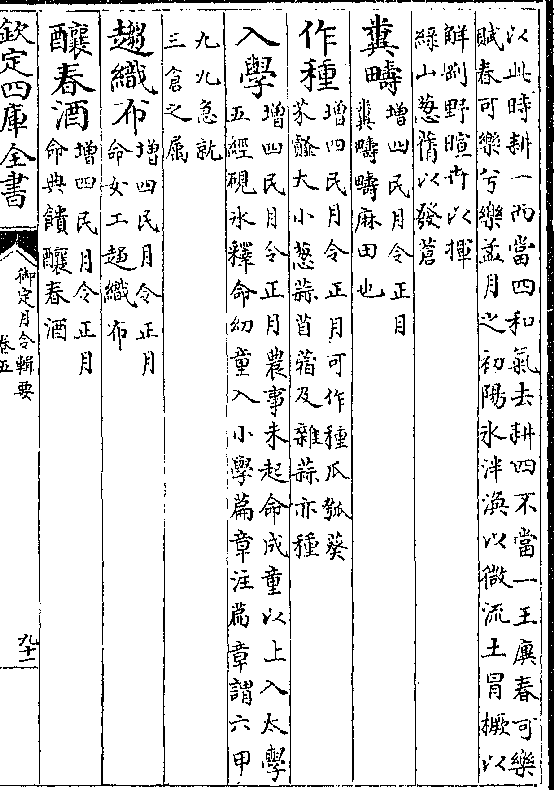 以此時耕一而當四和氣去耕四不當一王廙春可樂
賦春可樂兮樂孟月之初陽氷泮渙以微流土冒橛以
解刚野暄卉以揮
綠山葱蒨以發蒼
糞疇
增四民月令正月
糞疇疇麻田也
作種
增四民月令正月可作種瓜瓠葵
芥䪥大小葱蒜苜蓿及雜蒜亦種
入學
增四民月令正月農事未起命成童以上入太學
五經硯氷釋命幼童入小學篇章注篇章謂六甲
九九急就
三倉之屬
趨織布
增四民月令正月
命女工趨織布
釀春酒
增四民月令正月
命典饋釀春酒
欽定四庫全書
御定月令輯要
卷五
九十二